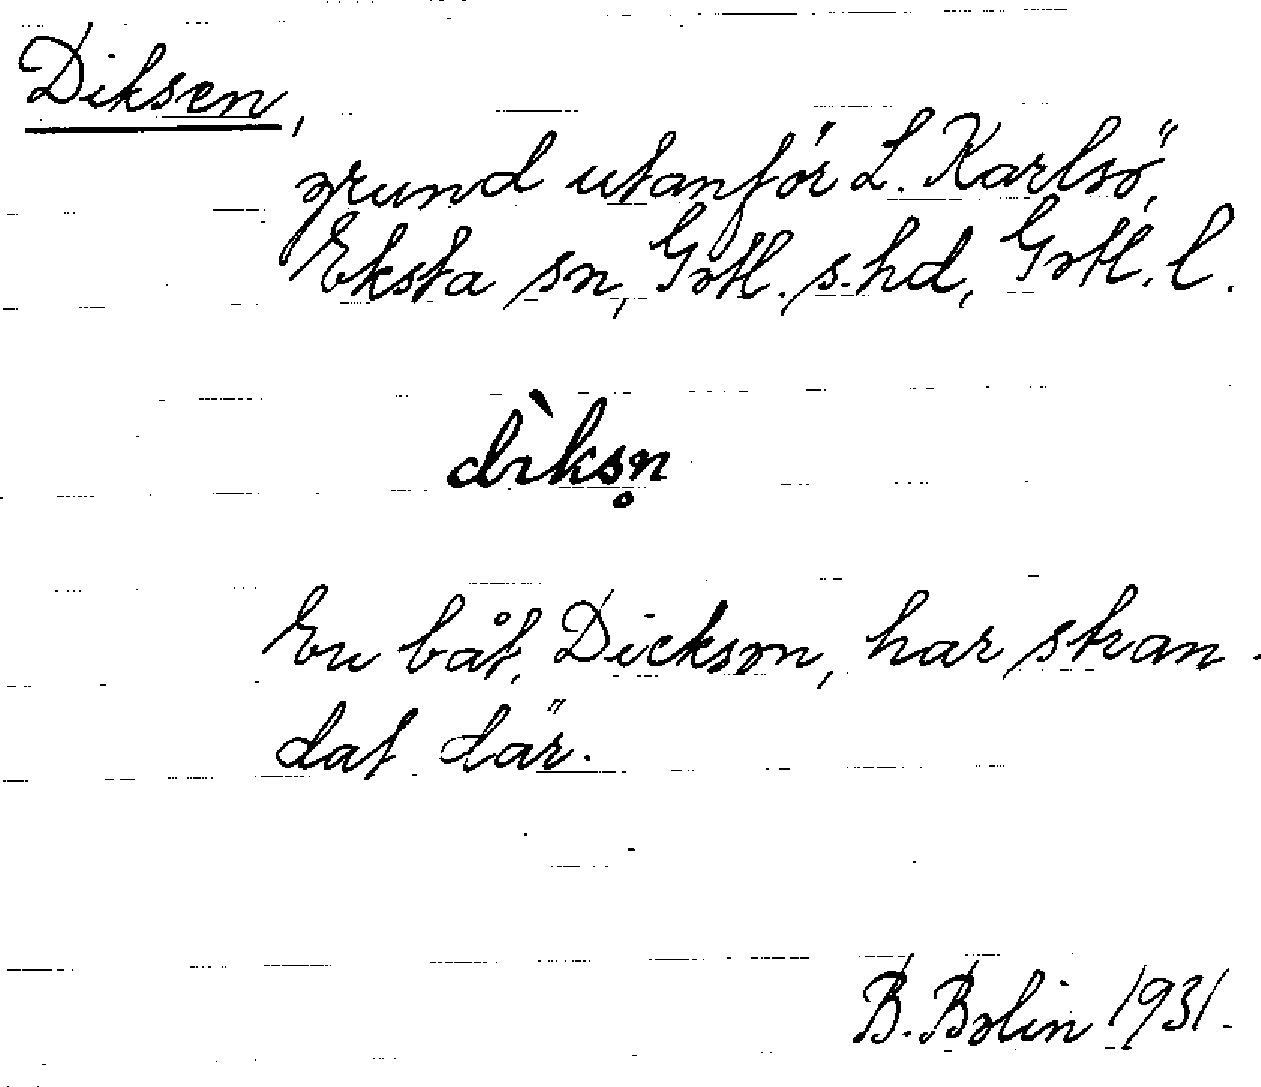 Diksen,
grund utanför L. Karlsö,
Eksta sn, Gotl. s. hd, Gotl. l.
dìksn̥
En båt, Dickson, har stran-
dat där.
B. Bolin 1931.